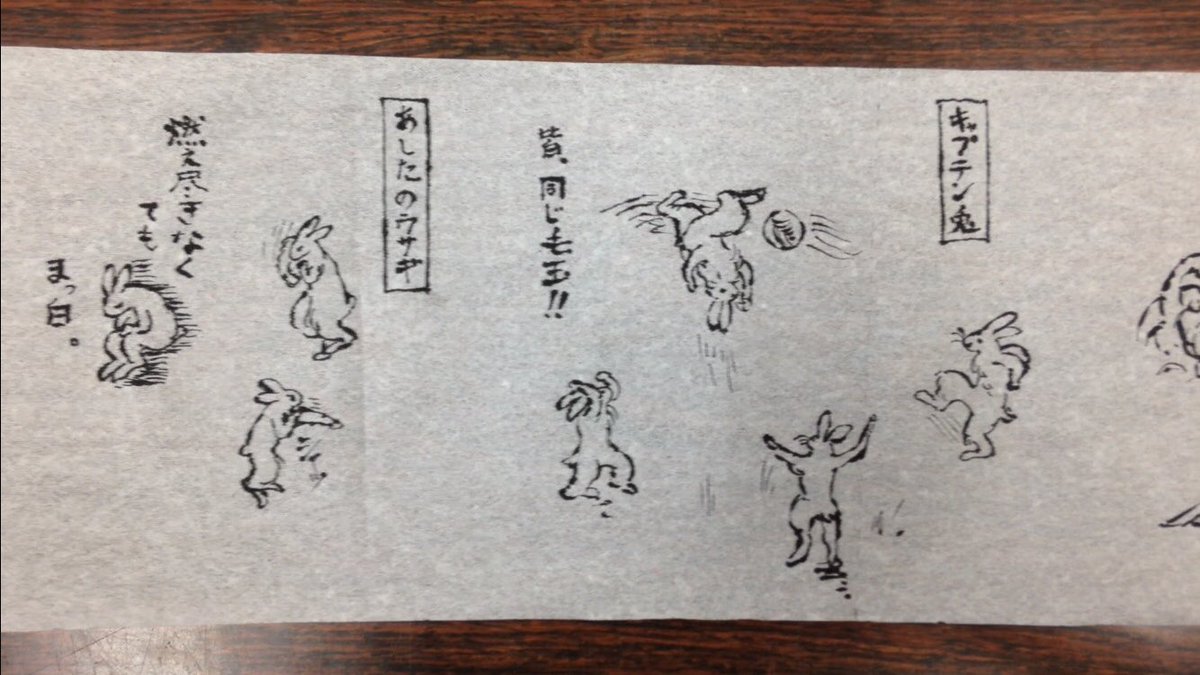 キャプテン兎
皆、同じ毛玉!!
あしたのウサギ
燃え尽きなく
ても
まっ白。